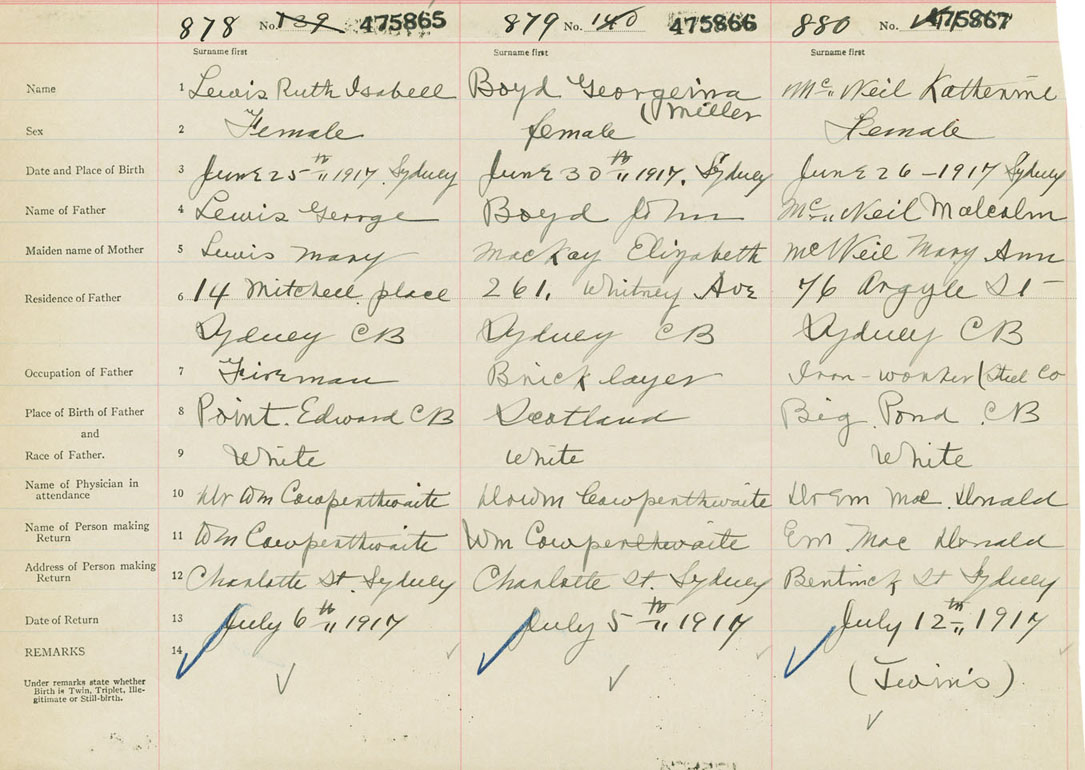 878 No. 139 475865 879 No. 140 475866 880 No. 475867
Surname first Surname first Surname first
Name 1 Lewis Ruth Isabell Boyd Georgeina (Miller Mc Neil Katherine
Sex 2 Female female Female
Date and Place of Birth 3 June 25th 1917. Sydney June 30th 1917. Sydney June 26 - 1917 Sydney
Name of Father 4 Lewis George Boyd John Mc Neil Malcolm
Maiden name of Mother 5 Lewis Mary MacKay Elizabeth McNeil Mary Ann
Residence of Father 6 14 Mitchell place 261, Whitney Ave 76 Argyle St
Sydney CB Sydney CB Sydney CB
Occupation of Father 7 Fireman Brick layer Iron-worker (Steel Co
Place of Birth of Father 8 Point. Edward CB Scotland Big Pond CB
and
Race of Father. 9 White White White
Name of Physician in attendance 10 Dr Wm Cowpenthwaite Dr Wm Cowpenthwaite Dr Em Mac Donald
Name of Person making Return 11 Wm Cowpenthwaite Wm Cowpenthwaite Em Mac Donald
Address of Person making Return 12 Charlotte St. Sydney Charlotte St. Sydney Bentinck St Sydney
Date of Return 13 July 6th 1917 July 5th 1917 July 12th 1917
REMARKS 14
Under remarks state whether
Birth is Twin, Triplet, Ille-
gitimate or Still-birth.
(Twins)